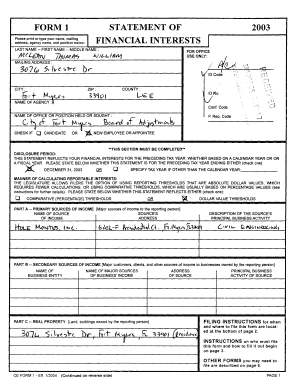 FORM 1 STATEMENT OF 2003
Please print or type your name, mailing address, agency name, and position below:
FINANCIAL INTERESTS
LAST NAME - FIRST NAME - MIDDLE NAME:
McLEAN THOMAS WILLIAM
FOR OFFICE USE ONLY:
MAILING ADDRESS:
3076 Silvestre Dr
ID Code
CITY: ZIP: COUNTY:
Fort Myers 33901 LEE
ID No.
NAME OF AGENCY:
Conf. Code
NAME OF OFFICE OR POSITION HELD OR SOUGHT:
P. Req. Code
City of Fort Myers Board of Adjustments
CHECK IF CANDIDATE OR NEW EMPLOYEE OR APPOINTEE
**THIS SECTION MUST BE COMPLETED**
DISCLOSURE PERIOD:
THIS STATEMENT REFLECTS YOUR FINANCIAL INTERESTS FOR THE PRECEDING TAX YEAR, WHETHER BASED ON A CALENDAR YEAR OR ON A FISCAL YEAR. PLEASE STATE BELOW WHETHER THIS STATEMENT IS FOR THE PRECEDING TAX YEAR ENDING EITHER (check one):
DECEMBER 31, 2003 OR SPECIFY TAX YEAR IF OTHER THAN THE CALENDAR YEAR:
MANNER OF CALCULATING REPORTABLE INTERESTS:
THE LEGISLATURE ALLOWS FILERS THE OPTION OF USING REPORTING THRESHOLDS THAT ARE ABSOLUTE DOLLAR VALUES, WHICH REQUIRES FEWER CALCULATIONS, OR USING COMPARATIVE THRESHOLDS, WHICH ARE USUALLY BASED ON PERCENTAGE VALUES (see instructions for further details). PLEASE STATE BELOW WHETHER THIS STATEMENT REFLECTS EITHER (check one):
COMPARATIVE (PERCENTAGE) THRESHOLDS OR DOLLAR VALUE THRESHOLDS
PART A -- PRIMARY SOURCES OF INCOME [Major sources of income to the reporting person]
NAME OF SOURCE OF INCOME SOURCE'S ADDRESS DESCRIPTION OF THE SOURCE'S PRINCIPAL BUSINESS ACTIVITY
HOLE MONTES, INC. CIVIL ENGINEERING
PART B -- SECONDARY SOURCES OF INCOME [Major customers, clients, and other sources of income to businesses owned by the reporting person]
NAME OF BUSINESS ENTITY NAME OF MAJOR SOURCES OF BUSINESS' INCOME ADDRESS OF SOURCE PRINCIPAL BUSINESS ACTIVITY OF SOURCE
PART C -- REAL PROPERTY [Land, buildings owned by the reporting person]
3076 Silvestre Dr, Fort Myers, FL 33901
FILING INSTRUCTIONS for when and where to file this form are located at the bottom of page 2.
INSTRUCTIONS on who must file this form and how to fill it out begin on page 3.
OTHER FORMS you may need to file are described on page 6.
CE FORM 1 - Eff. 1/2004 (Continued on reverse side) PAGE 1